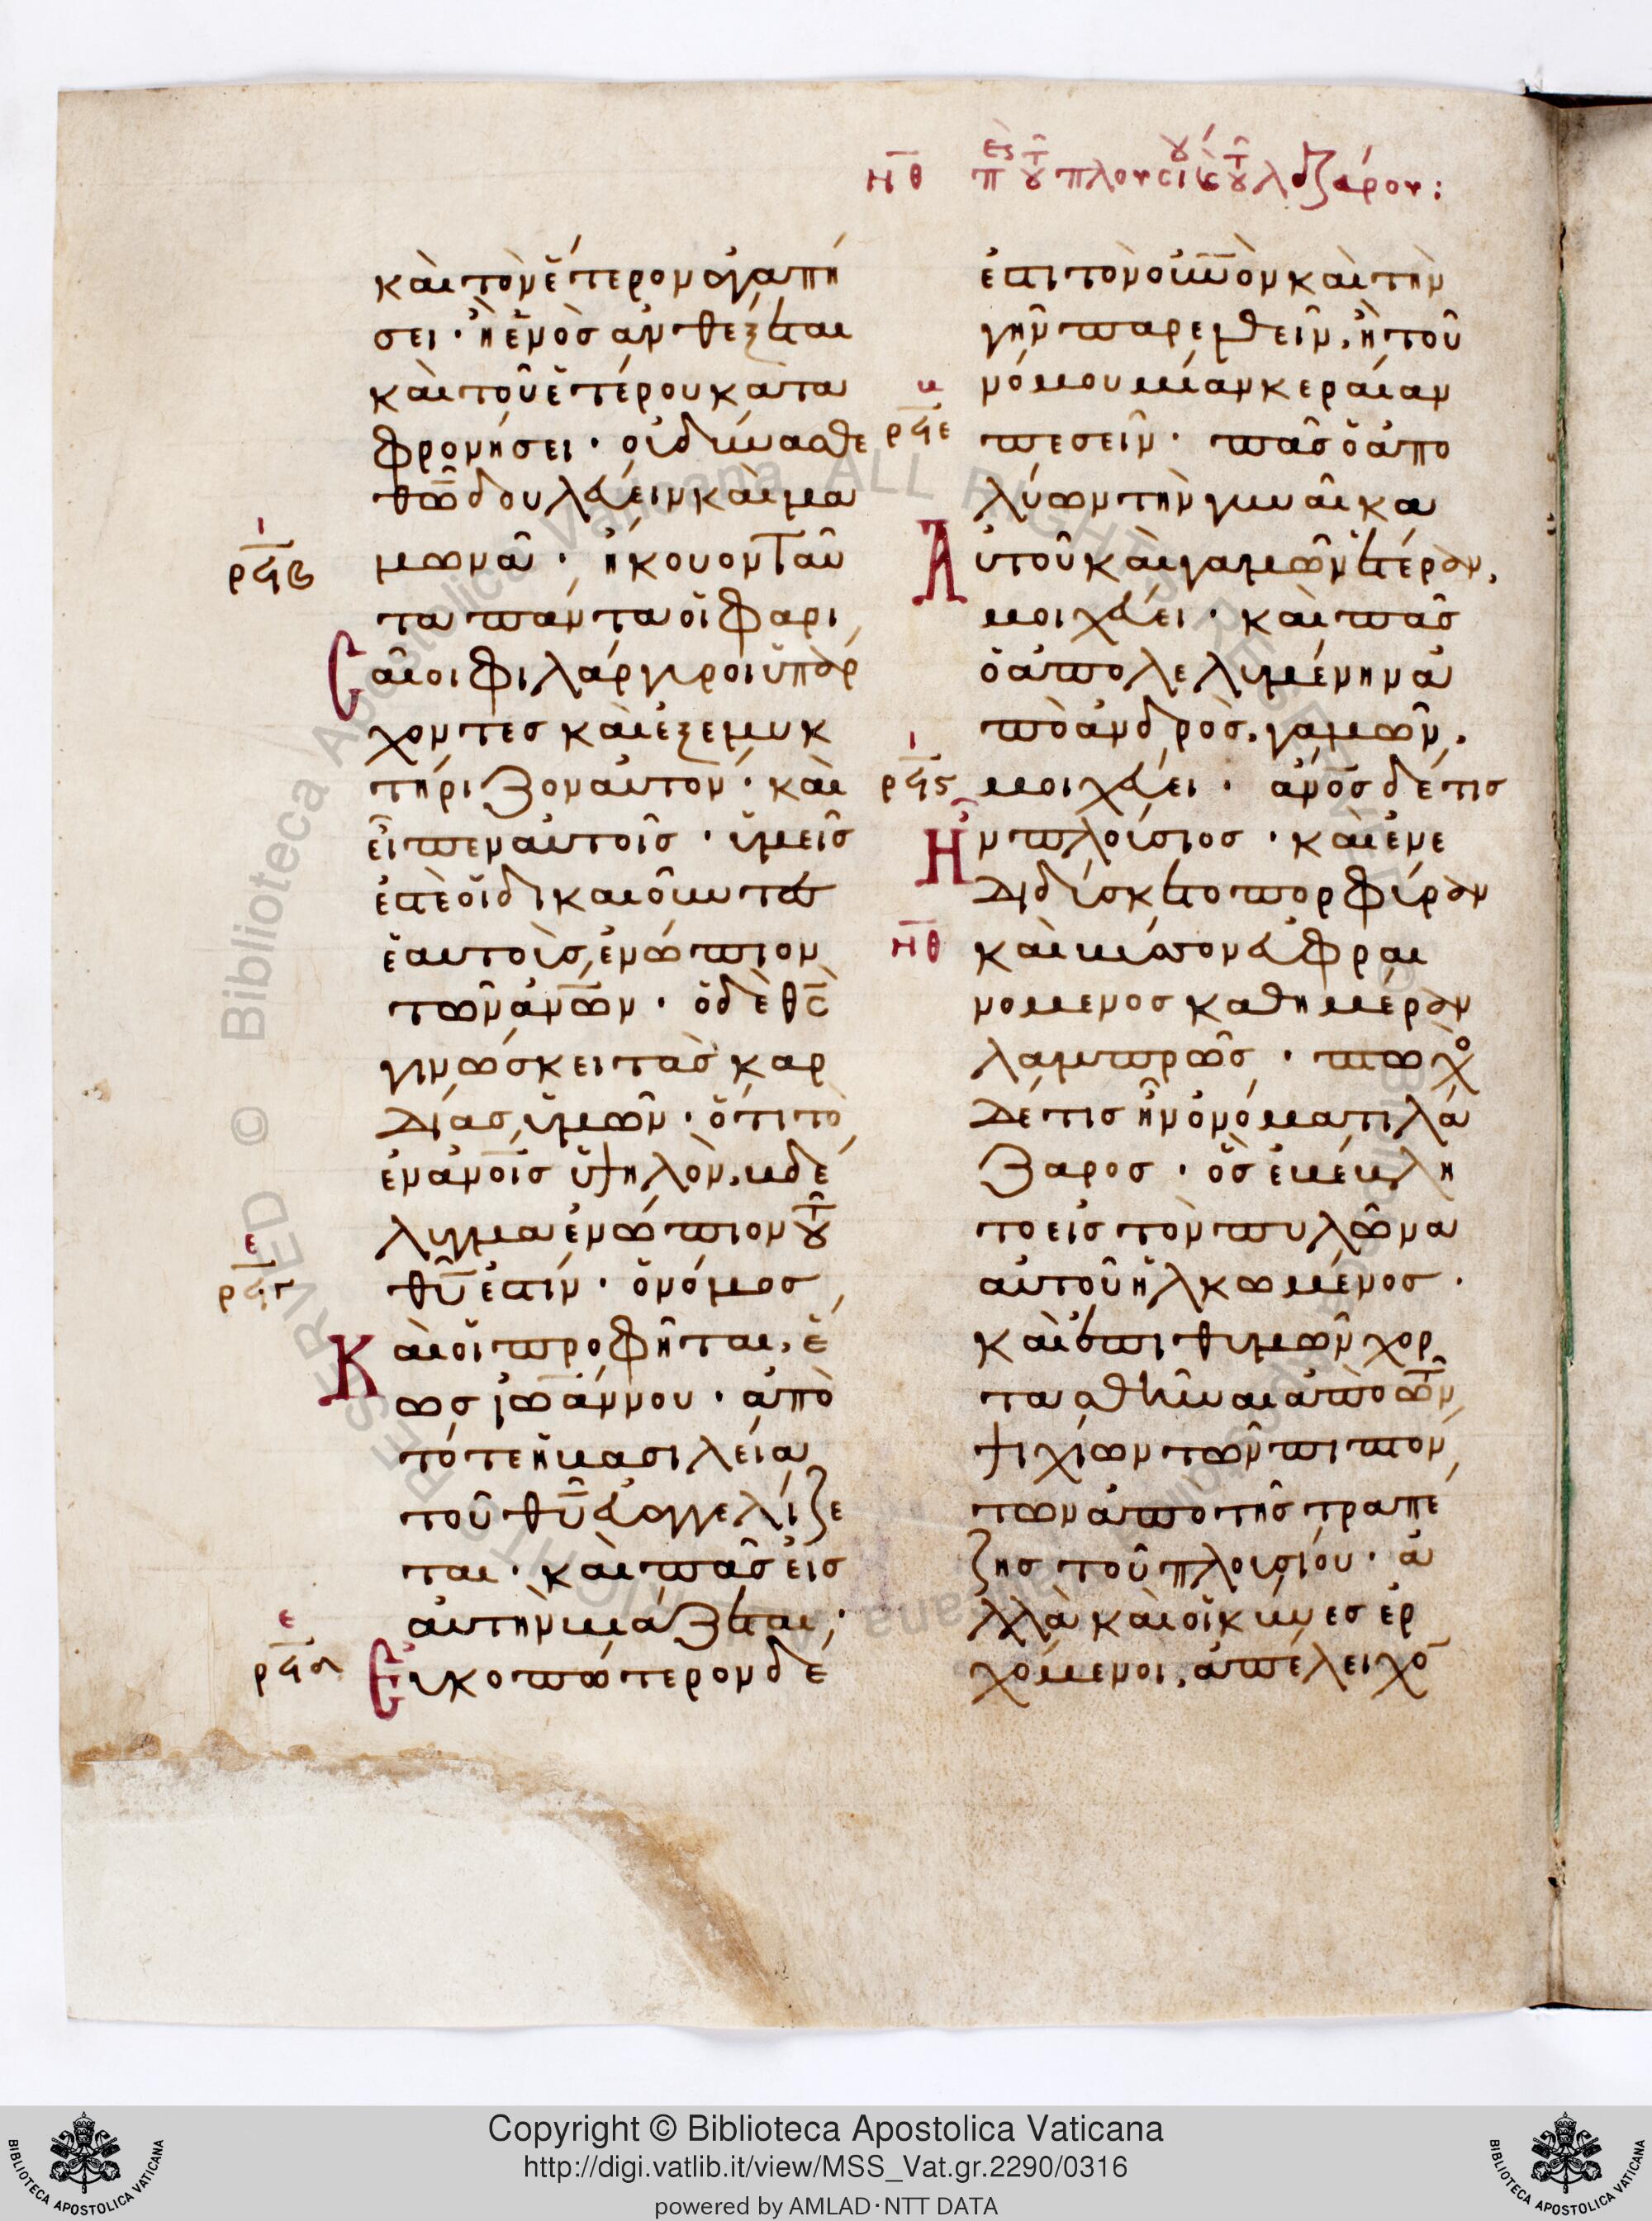 ΝΘ π̅ε̅ρ̅ τοῦ πλουσί(ου) κ(αὶ) τοῦ λαζάρου:
καὶ τὸν ἕτερον ἀγαπή
σει· ἢ ἑνὸς ἀνθέξεται
καὶ τοῦ ἑτέρου κατα
φρονήσει· οὐ δύνασθε
θ̅ω̅ δουλεύειν καὶ μα
ι
ρϟβ
μωνᾶ· ἤκουον ταῦ
τα πάντα οἱ φαρι
σαῖοι φιλάργυροι ὑπάρ
χοντες καὶ ἐξεμυκ
τήριζον αὐτόν· καὶ
εἶπεν αὐτοῖς· ὑμεῖς
ἐστὲ οἱ δικαιοῦντες
ἑαυτοὺς ἐνώπιον
τῶν ἀν̅ω̅ν· ὁ δὲ θ̅ς̅
γινώσκει τὰς καρ
δίας ὑμῶν· ὅτι τὸ
ἐν ἀν̅ο̅ις ὑψηλὸν, βδέ
λυγμα ἐνώπιον τοῦ
ε
ρϟγ
θ̅υ̅ ἐστίν· ὁ νόμος
καὶ οἱ προφῆται, ἕ
ως ἰωάννου· ἀπὸ
τότε ἡ βασιλεία
τοῦ θ̅υ̅ εὐαγγελίζε
ται· καὶ πᾶς εἰς
αὐτὴν βιάζεται·
ε
ρϟδ
Εὐκοπώτερον δέ
ἐστι τὸν οὐ̅ν̅ον καὶ τὴν
γῆν παρελθεῖν, ἢ τοῦ
νόμου μίαν κεραίαν
β
ρϟε
πεσεῖν· πᾶς ὁ ἀπο
λύων τὴν γυναῖκα
Αὐτοῦ καὶ γαμῶν ἑτέραν,
μοιχεύει· καὶ πᾶς
ὁ ἀπολελυμένην ἀ
πὸ ἀνδρὸς, γαμῶν,
ι
ρϟς
μοιχεύει· ἀν̅ο̅ς δέ τις
Ἦν πλούσιος· καὶ ἐνε
διδύσκετο πορφύραν
ΝΘ
καὶ βύσσον εὐφραι
νόμενος καθημέραν
λαμπρῶς· πτωχὸ
δέ τις ἦν ὀνόματι λά
ζαρος· ὃς ἐβέβλη
το εἰς τὸν πυλῶνα
αὐτοῦ ἡλκωμένος·
καὶ ἐπιθυμῶν χορ
τασθῆναι ἀπὸ τῶν
ψιχίων τῶν πιπτόν
των ἀπὸ τῆς τραπέ
ζης τοῦ πλουσίου· ἀ
λλὰ καὶ οἱ κύνες ἐρ
χόμενοι, ἀπέλειχο̅
Copyright © Biblioteca Apostolica Vaticana
http://digi.vatlib.it/view/MSS_Vat.gr.2290/0316
powered by AMLAD·NTT DATA
BIBLIOTECA APOSTOLICA VATICANA
BIBLIOTECA APOSTOLICA VATICANA